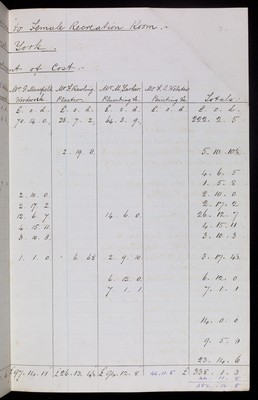 to Female Recreation Room.
York.
nt of Cost.
Plumbing &c Painting &c Totals.
£. s. d. £. s. d. £. s. d. £. s. d. £. s. d.
70. 14. 0. 23. 7. 2. 64. 3. 9. 222. 2. 5
2. 19. 0. 5. 10. 10½
4. 6. 5
1. 5. 8
2. 10. 0 2. 10. 0
2. 17. 2 2. 17. 2
12. 6. 7 14. 6. 0 26. 12. 7
4. 15. 11 4. 15. 11
3. 10. 3 3. 10. 3
1. 1. 0 6. 6½ 2. 9. 10 3. 17. 4½
6. 12. 0 6. 12. 0
7. 1. 1 7. 1. 1
14. 0. 0
9. 5. 0
23. 14. 6
£97. 14. 11 £26. 13. £94. 12. 8 44. 11. 8 £ 338. 1. 3
44. 11. 8
382. 12. 11